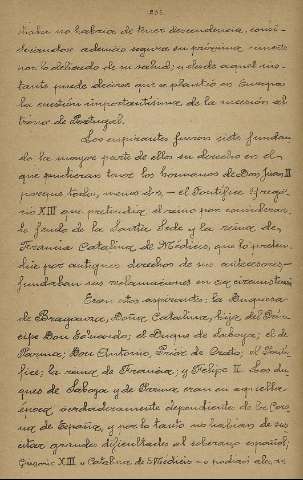 no habria de tener descendencia,
ademas segura su próxima muerte
por lo delicado de su salud; y desde aquel ins-
tante puede decirse que se planteó en Europa
la cuestión importantísima de la sucesión al
trono de Portugal.
Los aspirantes fueron siete fundan-
do la mayor parte de ellos su derecho en el
que tuvieran los hermanos de Don Juan III
porque todos, menos dos, - el Pontífice Gregó-
rio XIII que pretendia el reino por considerar-
lo feudo de la Santa Sede y la reina de
Francia Catalina de Médicis, que lo preten-
dia por antiguos derechos de sus antecesores-
fundaban sus reclamaciones en
Eran estos aspirantes: la Duquesa
de Braganza, Doña Catalina, hija del Prin-
cipe Don Eduardo; el Duque de Saboya; el de
Parma; Don Antonio, Prior de Crato; el Pontí-
fice; la reina de Francia; y Felipe II. Los du-
ques de Saboya y de Parma eran en aquella
época verdaderamente dependiente de la Coro-
na de España, y por lo tanto no habian de sus-
citar grandes dificultades al soberano español;
Gregorio XIII y Catalina de Médicis no podian